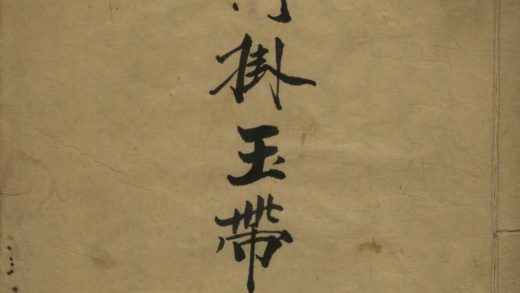 掛玉帶